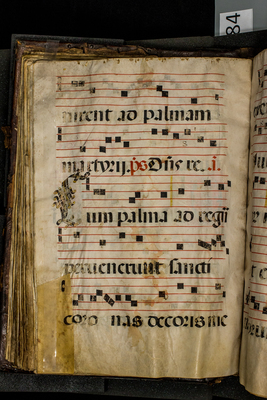 84
nirent ad palmam
martyrij. ps Dñs re. i.
Cum palma ad regīi
peruenerunt sancti
coro nas decoris me